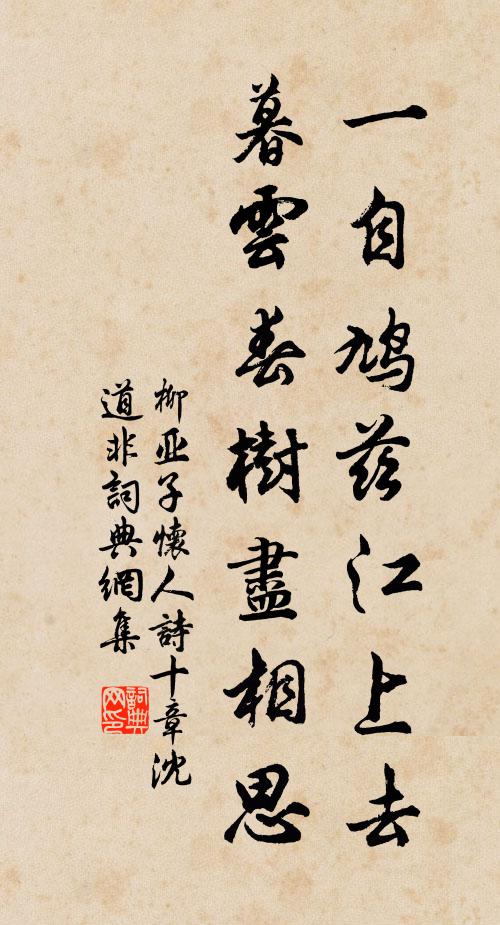 一自鳩茲江上去
暮雲春樹盡相思
柳亚子懷人詩十章沈
道非詞典網集
詞典
网印